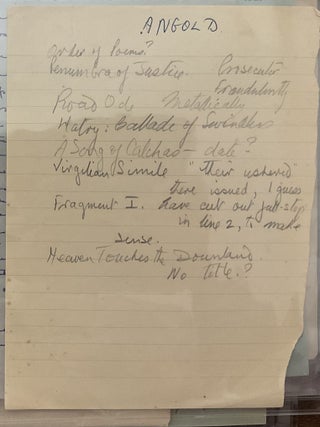 ANGOLD.
Order of Poems?
Penumbra of Justice. Prosecutor
Fraudulently
Road Ode Metallically
Hatry: Ballade of Swindlers
A Song of Calchas - date?
Virgilian Simile "their ushered"
there issued, I guess
Fragment I. have cut out full-stop
in line 2, to make
sense.
Heaven Touches the Downland.
No title.?